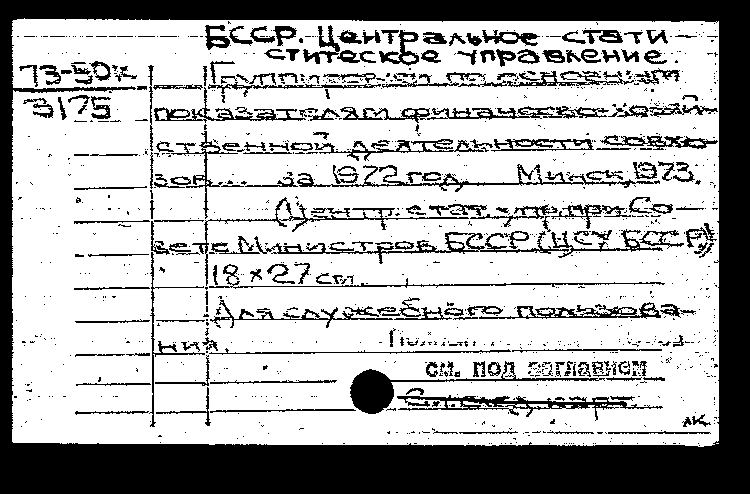 БССР. Центральное стати-
стическое управление.
73-50к
3175
Группировки по основным
показателям финансово-хозяй-
ственной деятельности совхо-
зов... за 1972 год. Минск, 1973.
(Центр. стат. упр. при Со-
вете Министров БССР (ЦСУ БССР))
18 × 27 см.
Для служебного пользова-
ния.
см. под заглавием
См. след. карт.